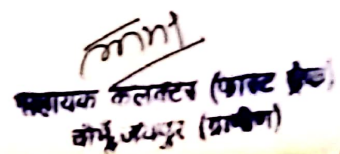 सहायक कलक्टर (फास्ट ट्रेक)
चौमूं, जयपुर (ग्रामीण)